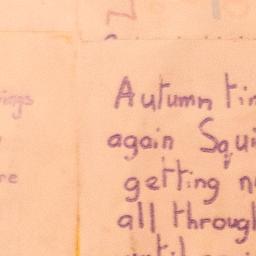 ings
re
Autumn tim
again Squi
getting nu
all throug
until